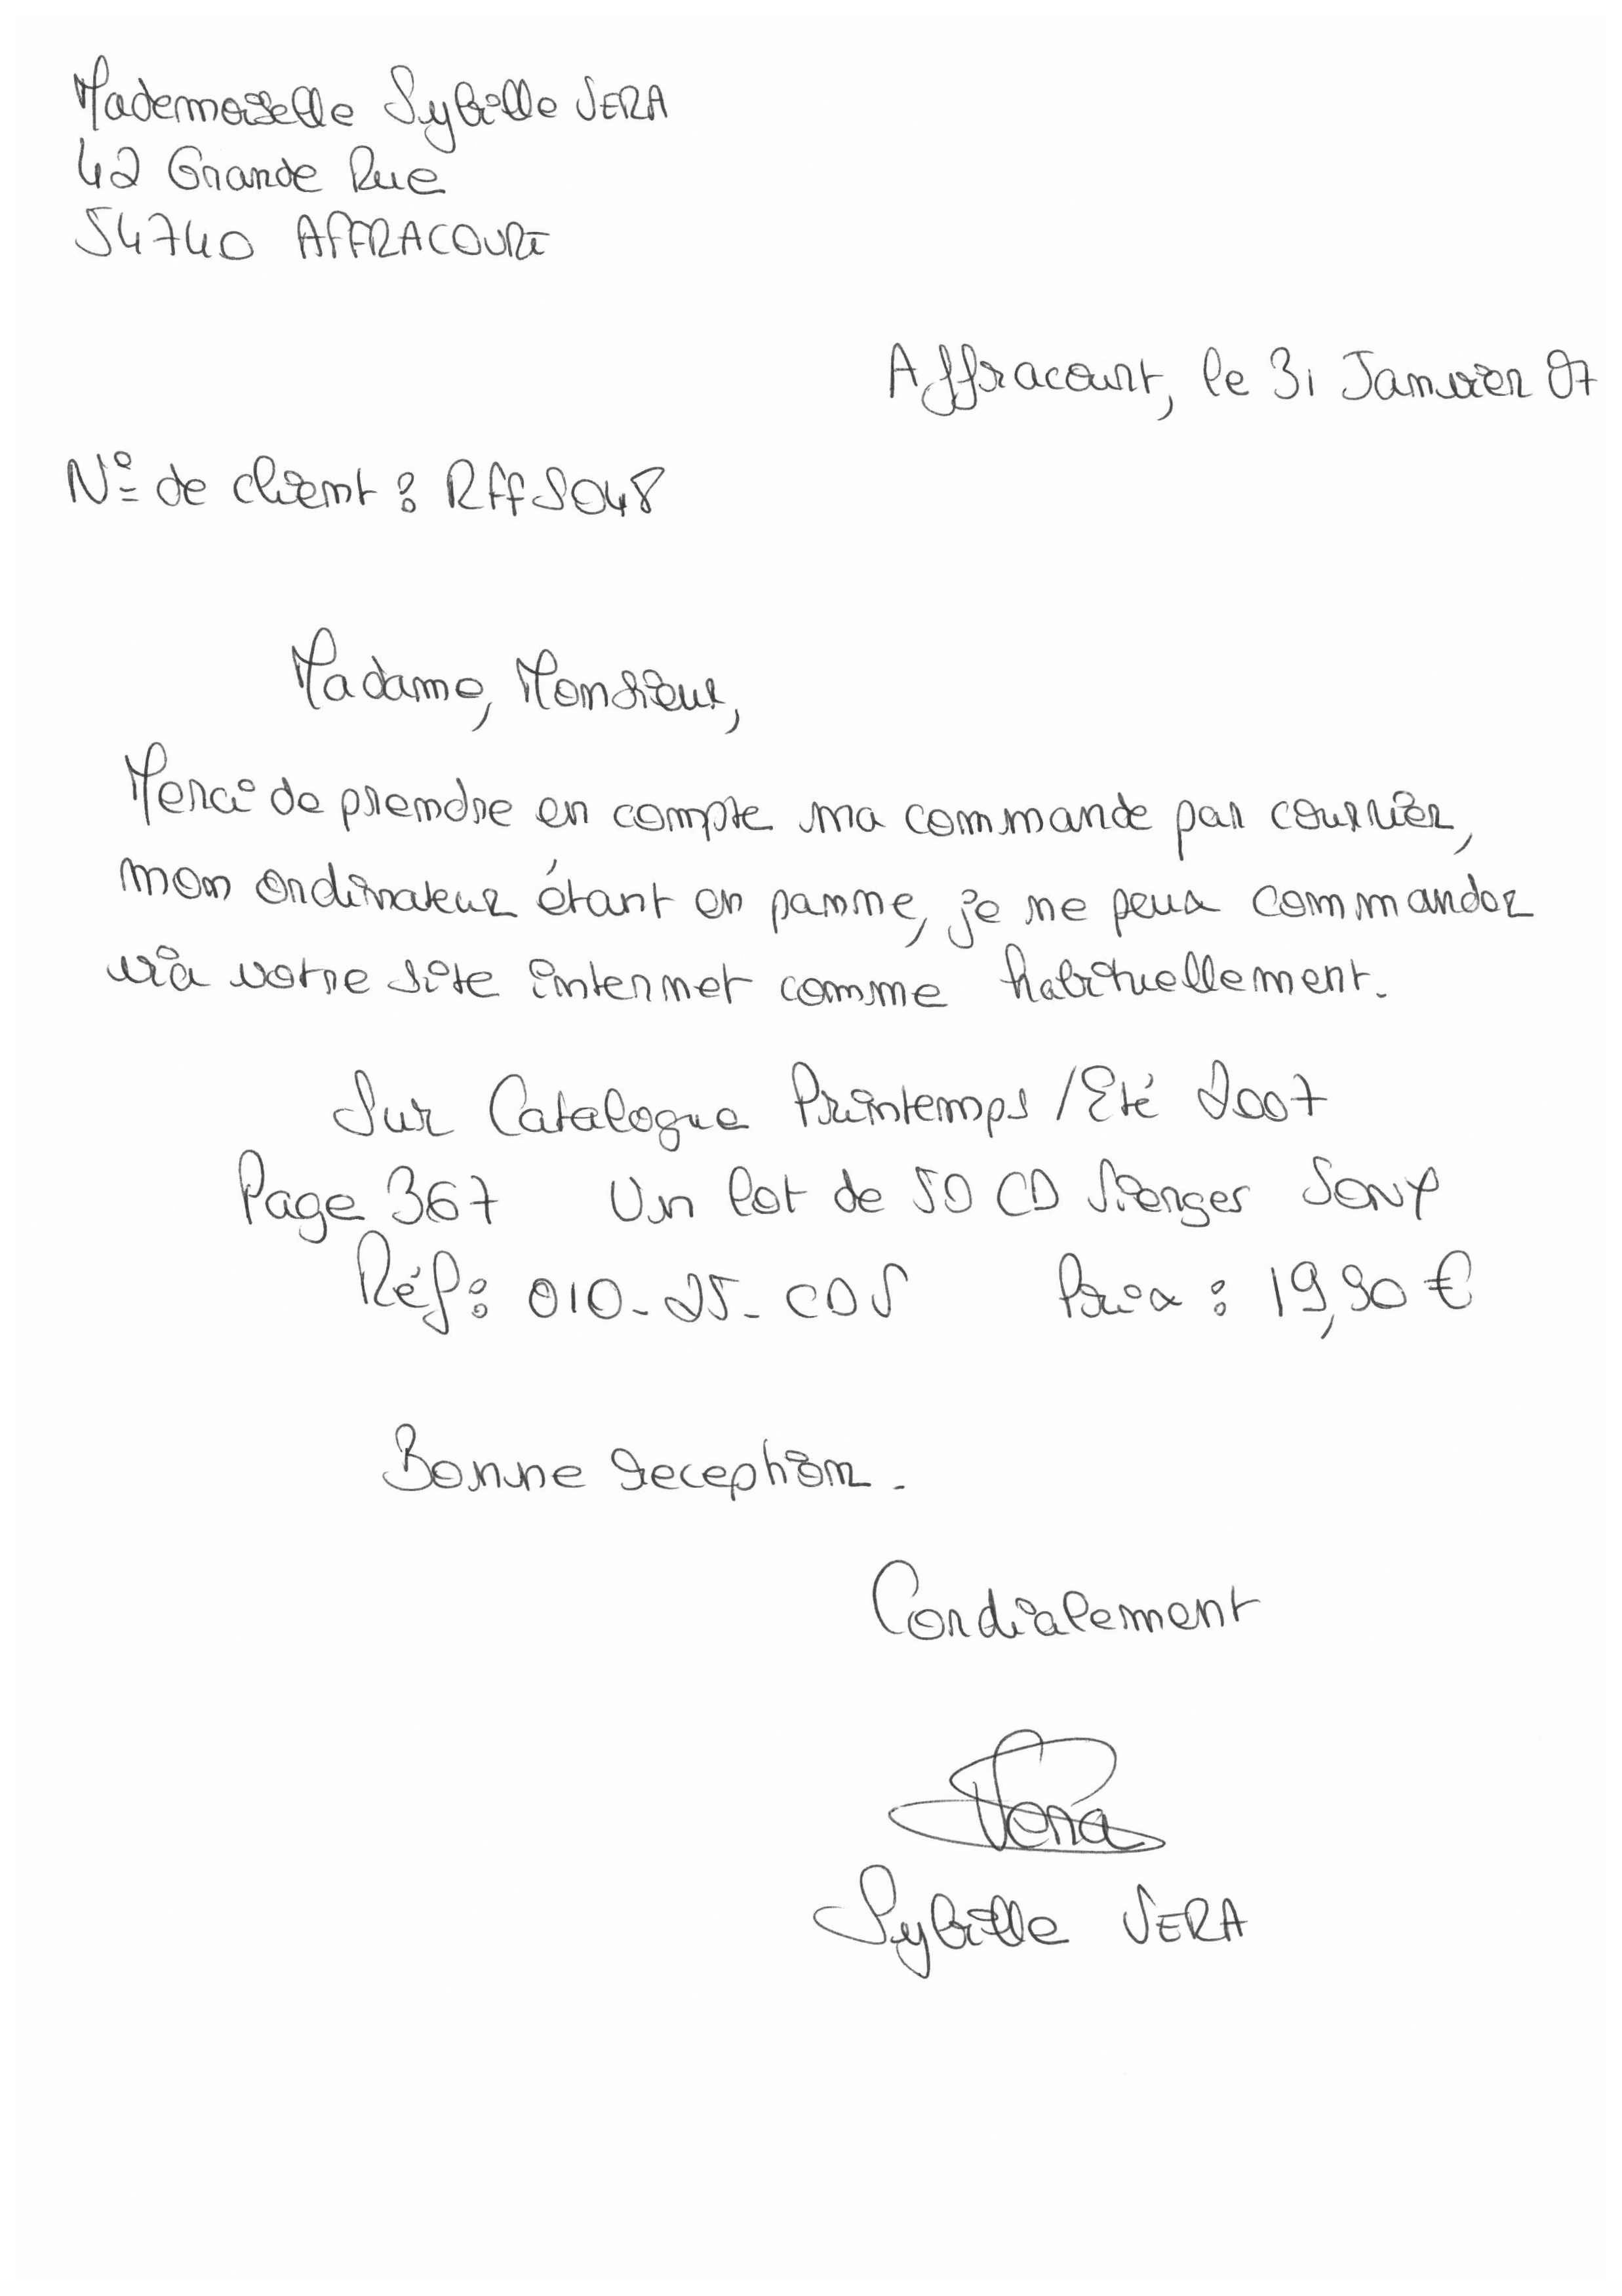 Mademoiselle Sybille VERA
42 Grande Rue
54740 AFFRACOURT
Affracourt, le 31 Janvier 07
N° de client : RFFS048
Madame, Monsieur,
Merci de prendre en compte ma commande par courrier,
mon ordinateur étant en panne, je ne peux commander
via votre site internet comme habituellement.
Sur Catalogue Printemps / Eté 2007
Page 367 Un lot de 50 CD Vierges SONY
Réf : 010-25-CDS Prix : 19,90 €
Bonne reception.
Cordialement
Vera
Sybille VERA